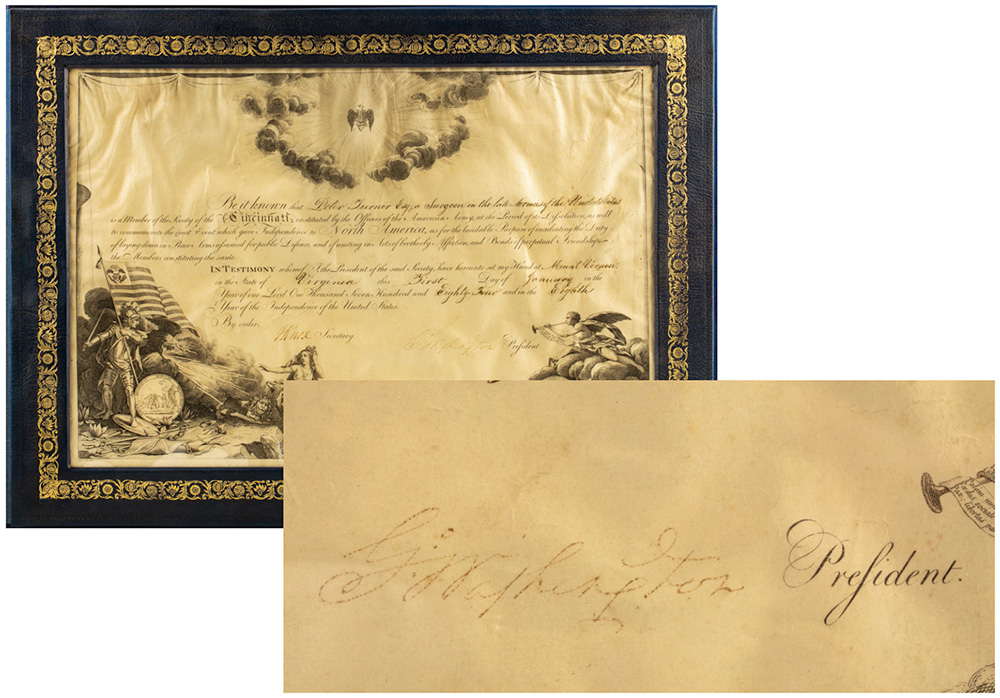 Be it known that Peter Turner Esq, a Surgeon in the late Armies of the United States
is a Member of the Society of the Cincinnati, instituted by the Officers of the American Army, at the Period of its Dissolution, as well
to commemorate the great Event which gave Independence to North America, as for the laudable Purpose of inculcating the Duty
of laying down in Peace Arms assumed for public Defence, and of uniting in Acts of brotherly Affection, and Bonds of perpetual Friendship
the Members constituting the same.
IN TESTIMONY whereof I, the President of the said Society, have hereunto set my Hand at Mount Vernon
in the State of Virginia this First Day of January in the
Year of our Lord One Thousand Seven Hundred and Eighty Four and in the Eighth
Year of the Independence of the United States.
By order,
HKnox Secretary
G:Washington President
G:Washington President.